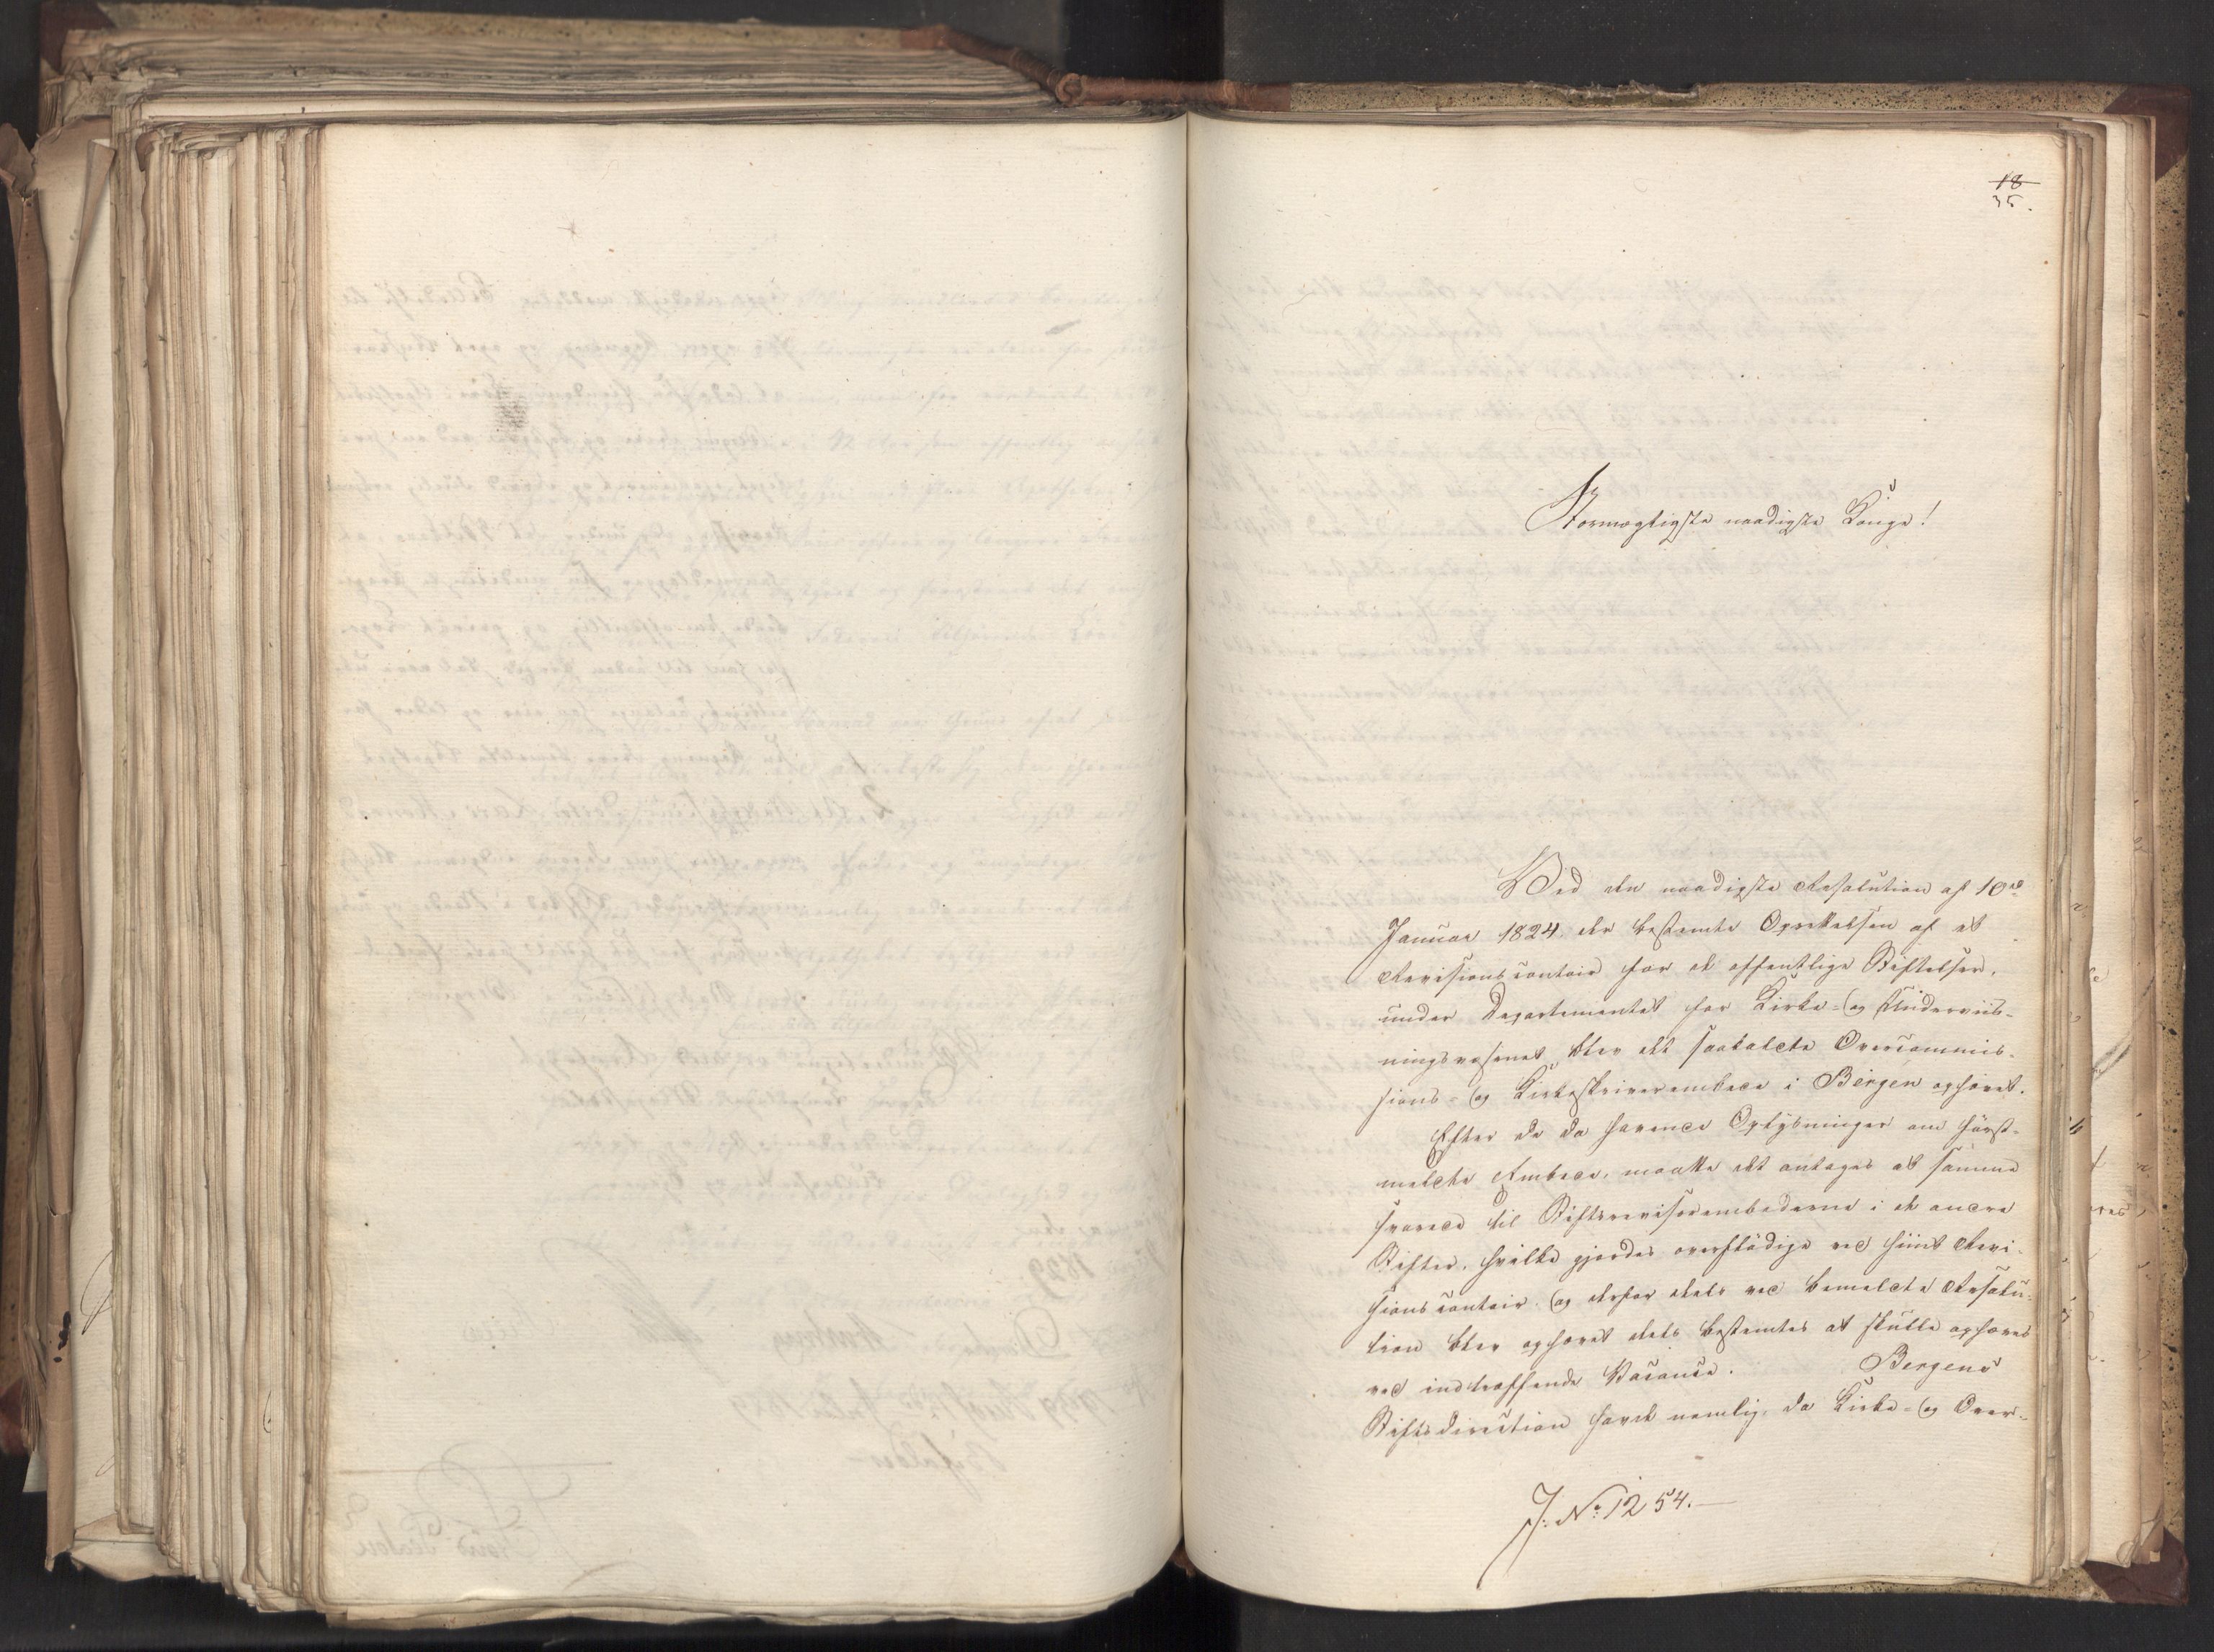 18
35.
Stormægtigste naadigste Konge!
Ved den naadigste Resolution af 10de
Januar 1824. der bestemte Oprettelsen af et
Revisionscontoir for de offentlige Stiftelser,
under Departementet for Kirke- og Underviis-
ningsvæsenet, blev det saakaldte Overcommis-
sions- og Kirkeskriverembede i Bergen ophævet.
Efter de da havende Oplysninger om først-
meldte Embede, maatte det antages at samme
svarede til Stiftsrevisorembederne i de andre
Stifter, hvilke gjordes overflødige ved hiint Revi-
sionscontoir, og derfor deels ved bemeldte Resolu-
tion blev ophævet deels bestemtes at skulle ophæves
ved indtræffende Vacance. Bergens
Stiftsdirection havde nemlig, da Kirke- og Over-
J. No. 1254.